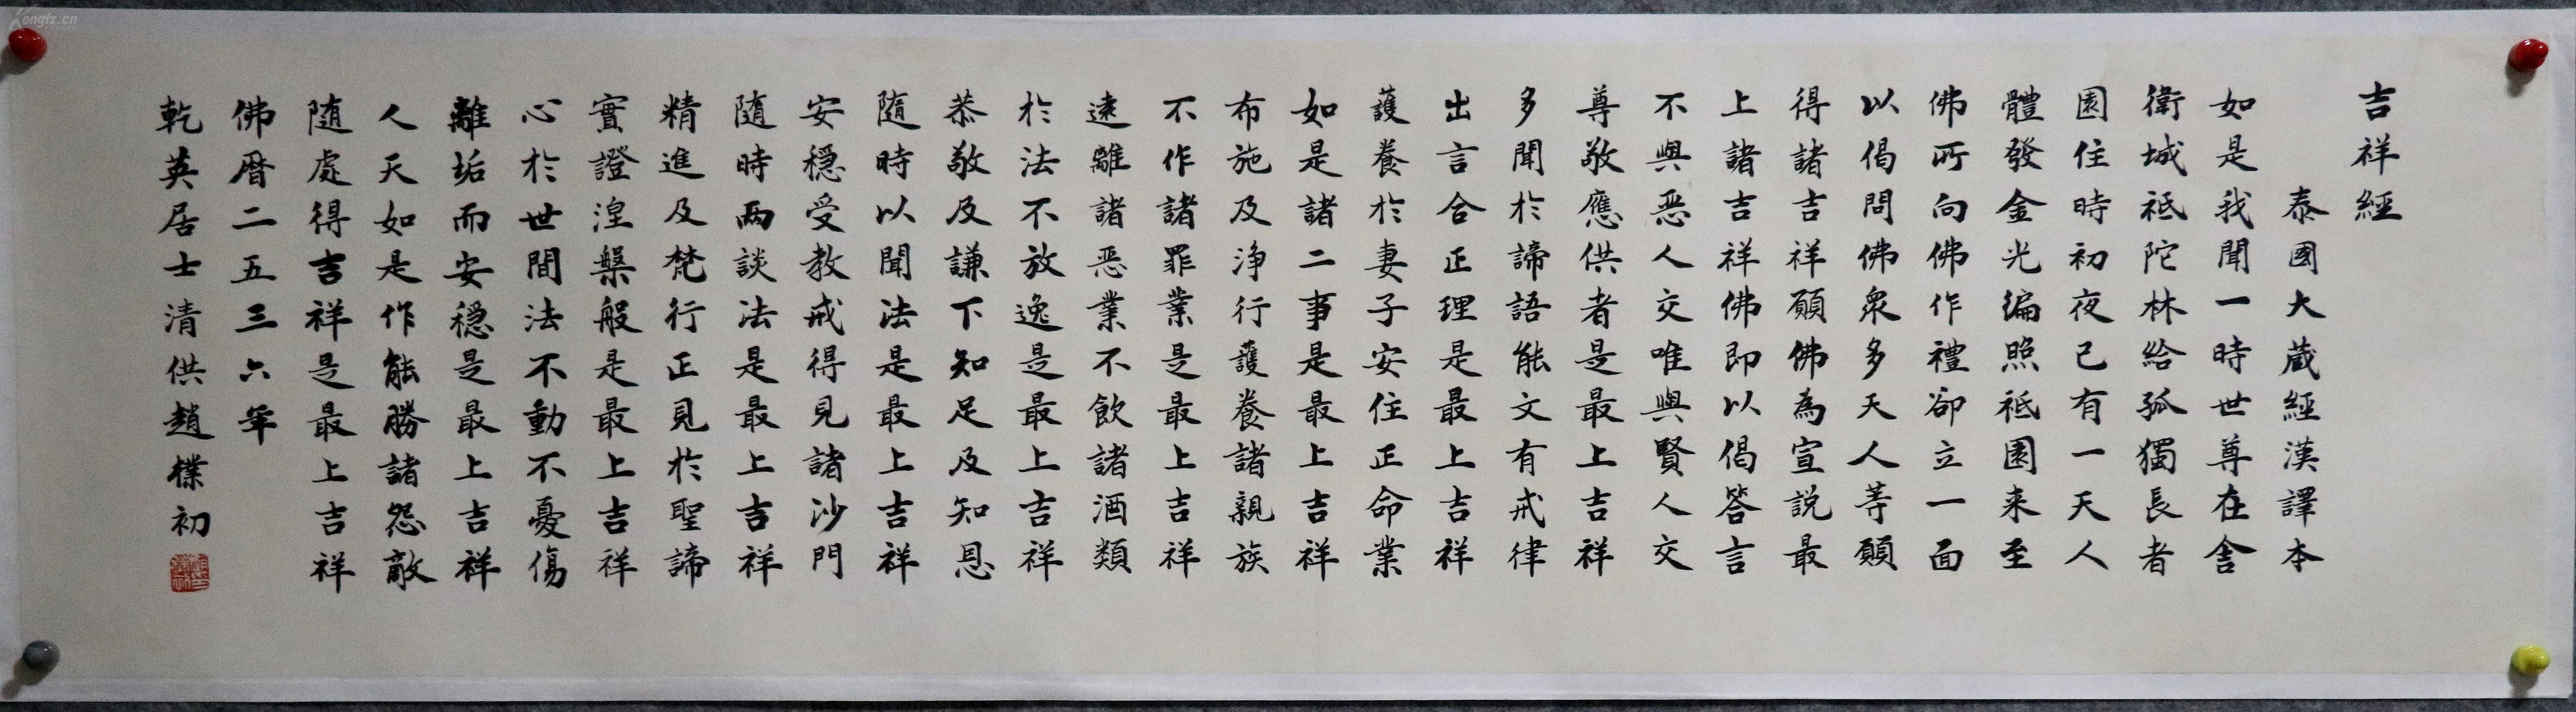 吉祥經
泰國大蔵經漢譯本
如是我聞一時世尊在舎
衛城祗陀林給孤獨長者
園住時初夜已有一天人
體發金光徧照祗園来至
佛所向佛作禮卻立一面
以偈問佛衆多天人等願
得諸吉祥願佛為宣説最
上諸吉祥佛即以偈答言
不與恶人交唯與賢人交
尊敬應供者是最上吉祥
多聞於諦語能文有戒律
出言合正理是最上吉祥
護養於妻子安住正命業
如是諸二事是最上吉祥
布施及浄行護養諸親族
不作諸罪業是最上吉祥
遠離諸恶業不飲諸酒類
於法不放逸是最上吉祥
恭敬及謙下知足及知恩
隨時以聞法是最上吉祥
安穏受教戒得見諸沙門
隨時兩談法是最上吉祥
精進及梵行正見於聖諦
實證湼槃般是最上吉祥
心於世間法不動不憂傷
離垢而安穏是最上吉祥
人天如是作能勝諸怨敵
随處得吉祥是最上吉祥
佛曆二五三六年
乾英居士清供趙樸初
Kongfz.cn